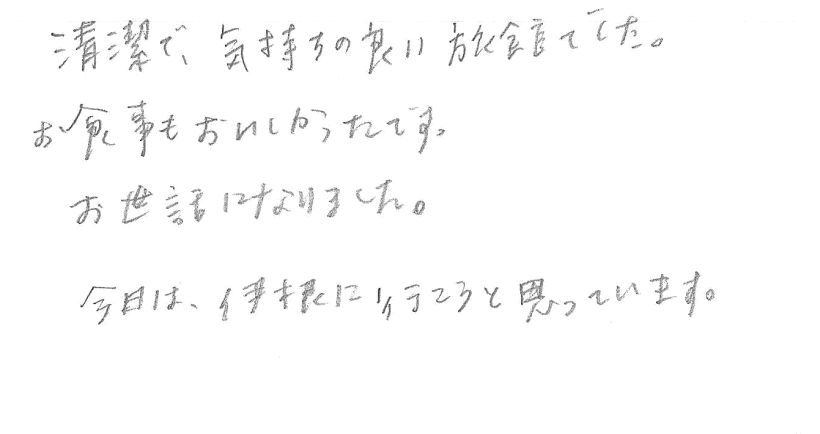 清潔で、気持ちの良い旅館でした。
お食事もおいしかったです。
お世話になりました。
今日は、伊根に行こうと思っています。